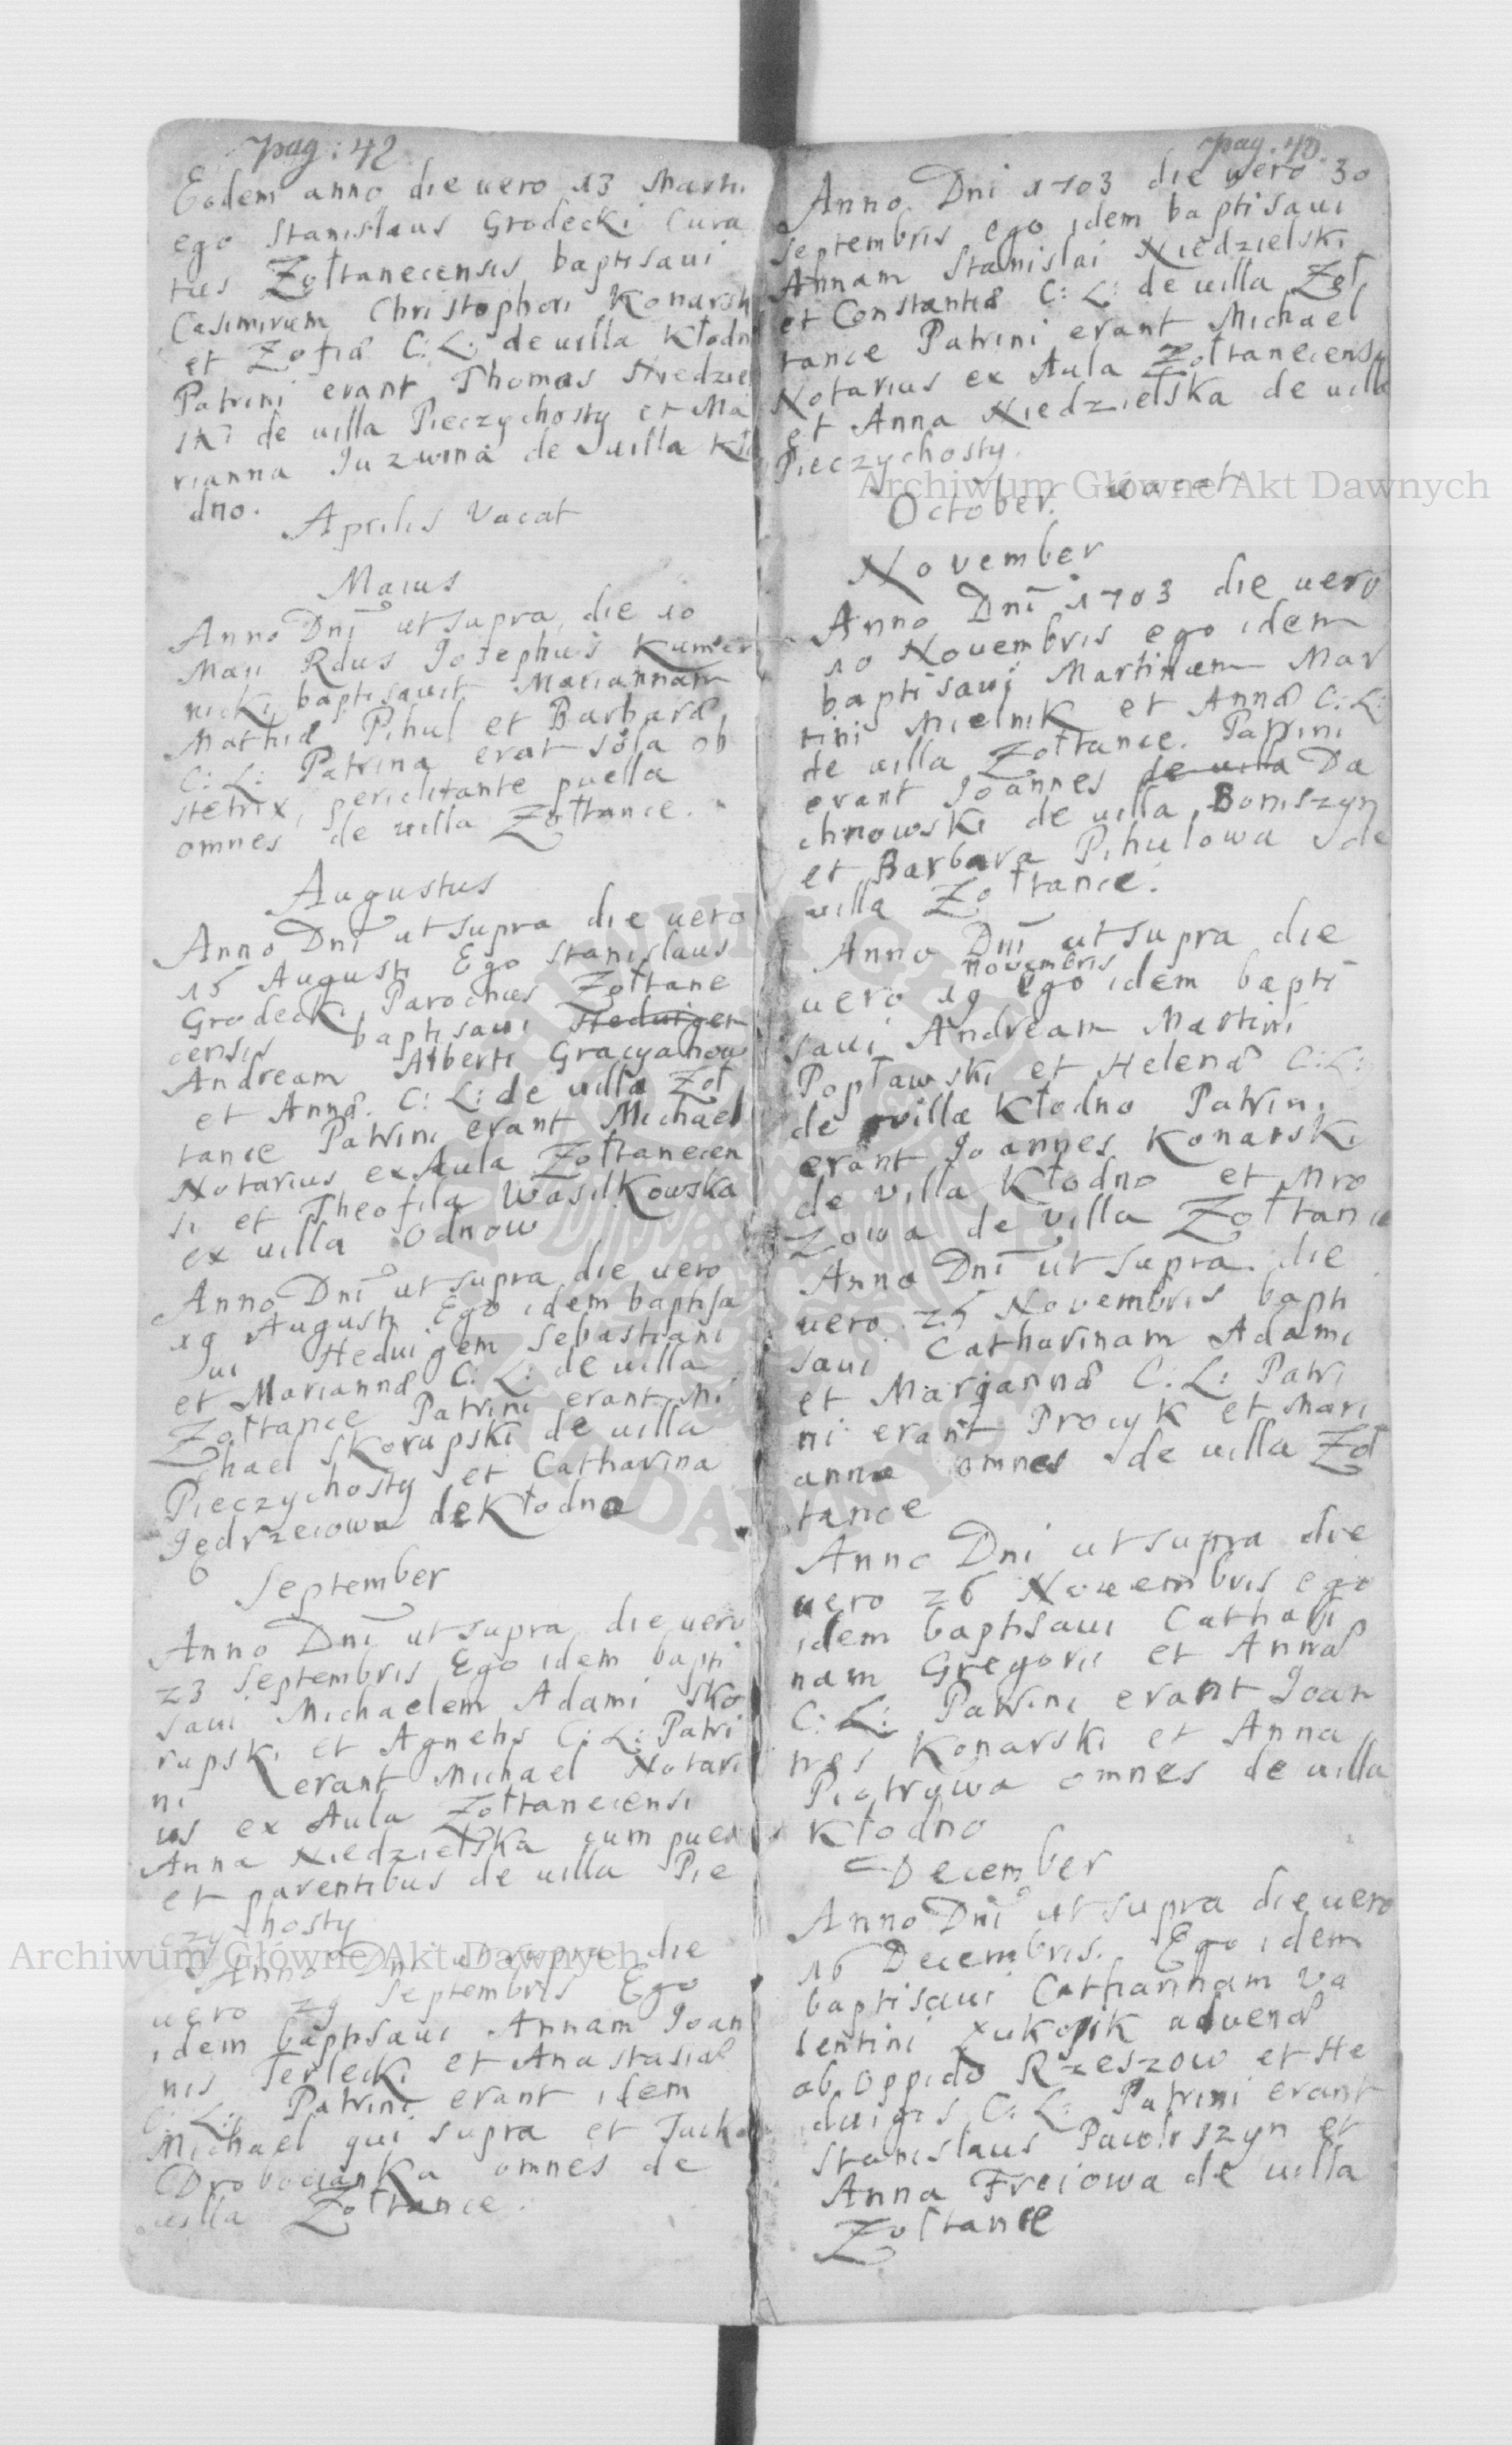 pag: 42
Eodem anno die uero 13 Martii
ego Stanislaus Grodecki Cura
tus Zołtanecensis baptisaui
Casimirum Christophori Konarsk
et Zofiæ C: L: de uilla Kłodn
Patrini erant Thomas Niedziel
ski de uilla Pieczychosty et Ma
rianna Juzwina de uilla Kło
dno.
Aprilis Vacat
Maius
Anno Dni ut supra die 10
Maii Rdus Josephus
nicki baptisauit Mariannam
Mathiæ Pihul et Barbaræ
C: L: Patrina erat sola ob
stetrix, periclitante puella
omnes de uilla Zołtance.
Augustus
Anno Dni ut supra die uero
15 Augusti Ego Stanislaus
Grodecki Parochus Zołtane
censis baptisaui Heduigem
Andream Alberti Gracyanow
et Annæ C: L: de uilla Zoł
tance Patrini erant Michael
Notarius ex Aula Zołtanecen
si et Theofila Wasilkowska
ex uilla Odnow
Anno Dni ut supra die uero
19 Augusti Ego idem baptisa
ui Heduigem Sebastiani
et Mariannæ C: L: de uilla
Zołtance Patrini erant Mi
chael Skorupski de uilla
Pieczychosty et Catharina
Jędrzeiowa de Kłodno
September
Anno Dni ut supra die uero
23 Septembris Ego idem bapti
saui Michaelem Adami Sko
rupski et Agnetis C: L: Patri
ni erant Michael Notari
us ex Aula Zołtanecensi
Anna Niedzielska cum puer
et parentibus de uilla Pie
czychosty
Anno Dni ut supra die
uero 29 Septembris Ego
idem baptisaui Annam Joan
nis Terlecki et Anastasiæ
C: L: Patrini erant idem
Michael qui supra et
Drobocianka omnes de
uilla Zołtance.
pag. 43
Anno Dni 1703 die uero 30
Septembris ego idem baptisaui
Annam Stanislai Niedzielski
et Constantiæ C: L: de uilla Zoł
tance Patrini erant Michael
Notarius ex Aula Zołtanecensi
et Anna Niedzielska de uilla
Pieczychosty.
October. uacat
November
Anno Dni 1703 die uero
10 Nouembris ego idem
baptisaui Martinum Mar
tini Mielnik et Annæ C: L:
de uilla Zołtance. Patrini
erant Joannes de uilla Da
chnowski de uilla Boniszyn
et Barbara Pihulowa de
uilla Zołtance.
Anno Dni ut supra die
novembris
uero 19 ego idem bapti
saui Andream Martini
Popławski et Helenæ C: L:
de villa Kłodno Patrini
erant Joannes Konarski
de villa Kłodno et Mro
zowa de villa Zołtance
Anno Dni ut supra die
uero 25 Novembris bapti
saui Catharinam Adami
et Marjannæ C: L: Patri
ni erant Procyk et Mari
anna omnes de uilla Zoł
tance
Anno Dni ut supra die
uero 26 Nouembris ego
idem baptisaui Cathari
nam Gregorii et Annæ
C: L: Patrini erant Joan
nes Konarski et Anna
Piotrowa omnes de uilla
Kłodno
December
Anno Dni ut supra die uero
16 Decembris. Ego idem
baptisaui Catharinam Va
lentini aduenæ
ab Oppido Rzeszow et He
duigis C: L: Patrini erant
Stanislaus Pawluszyn et
Anna Freiowa de uilla
Zołtance
Archiwum Główne Akt Dawnych
Archiwum Główne Akt Dawnych